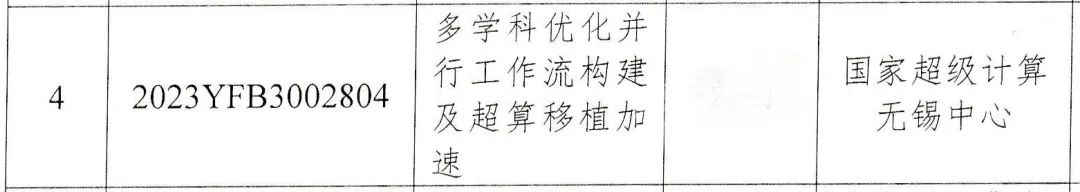 4
2023YFB3002804
多学科优化并
行工作流构建
及超算移植加
速
国家超级计算
无锡中心